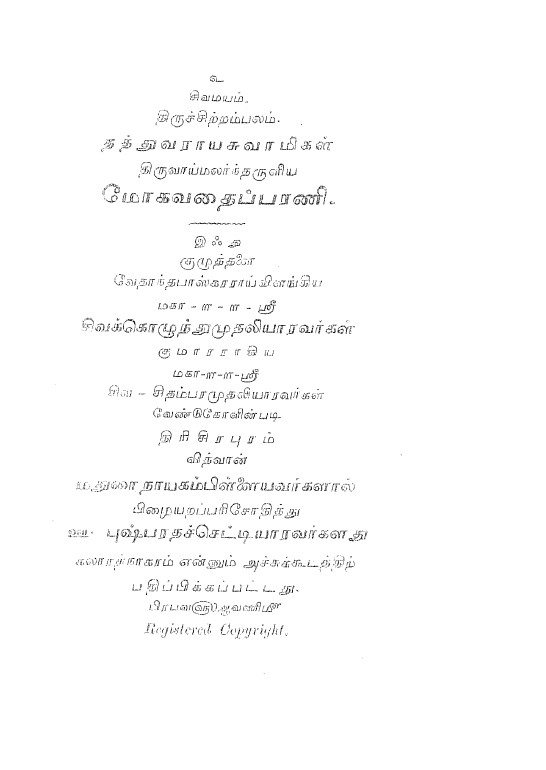 ௨
சிவமயம்.
திருச்சிற்றம்பலம்.
தத்துவராயசுவாமிகள்
திருவாய்மலர்ந்தருளிய
மோகவதைப்பரணி.
இஃது
குமுத்தலை
வேதாந்தபாஸ்கரராய்விளங்கிய
மகா - ௱ - ௱ - ஸ்ரீ
சிவக்கொழுந்துமுதலியாரவர்கள்
குமாரராகிய
மகா-௱-௱-ஸ்ரீ
சிவ - சிதம்பரமுதலியாரவர்கள்
வேண்டுகோளின்படி
திரிசிரபுரம்
வித்வான்
மதுரைநாயகம்பிள்ளையவர்களால்
பிழையறப்பரிசோதித்து
புஷ்பரதச்செட்டியாரவர்களது
கலாரத்நாகரம் என்னும் அச்சுக்கூடத்திற்
பதிப்பிக்கப்பட்டது.
பிரபவ௵ ஆவணி௴
Registered Copyright.